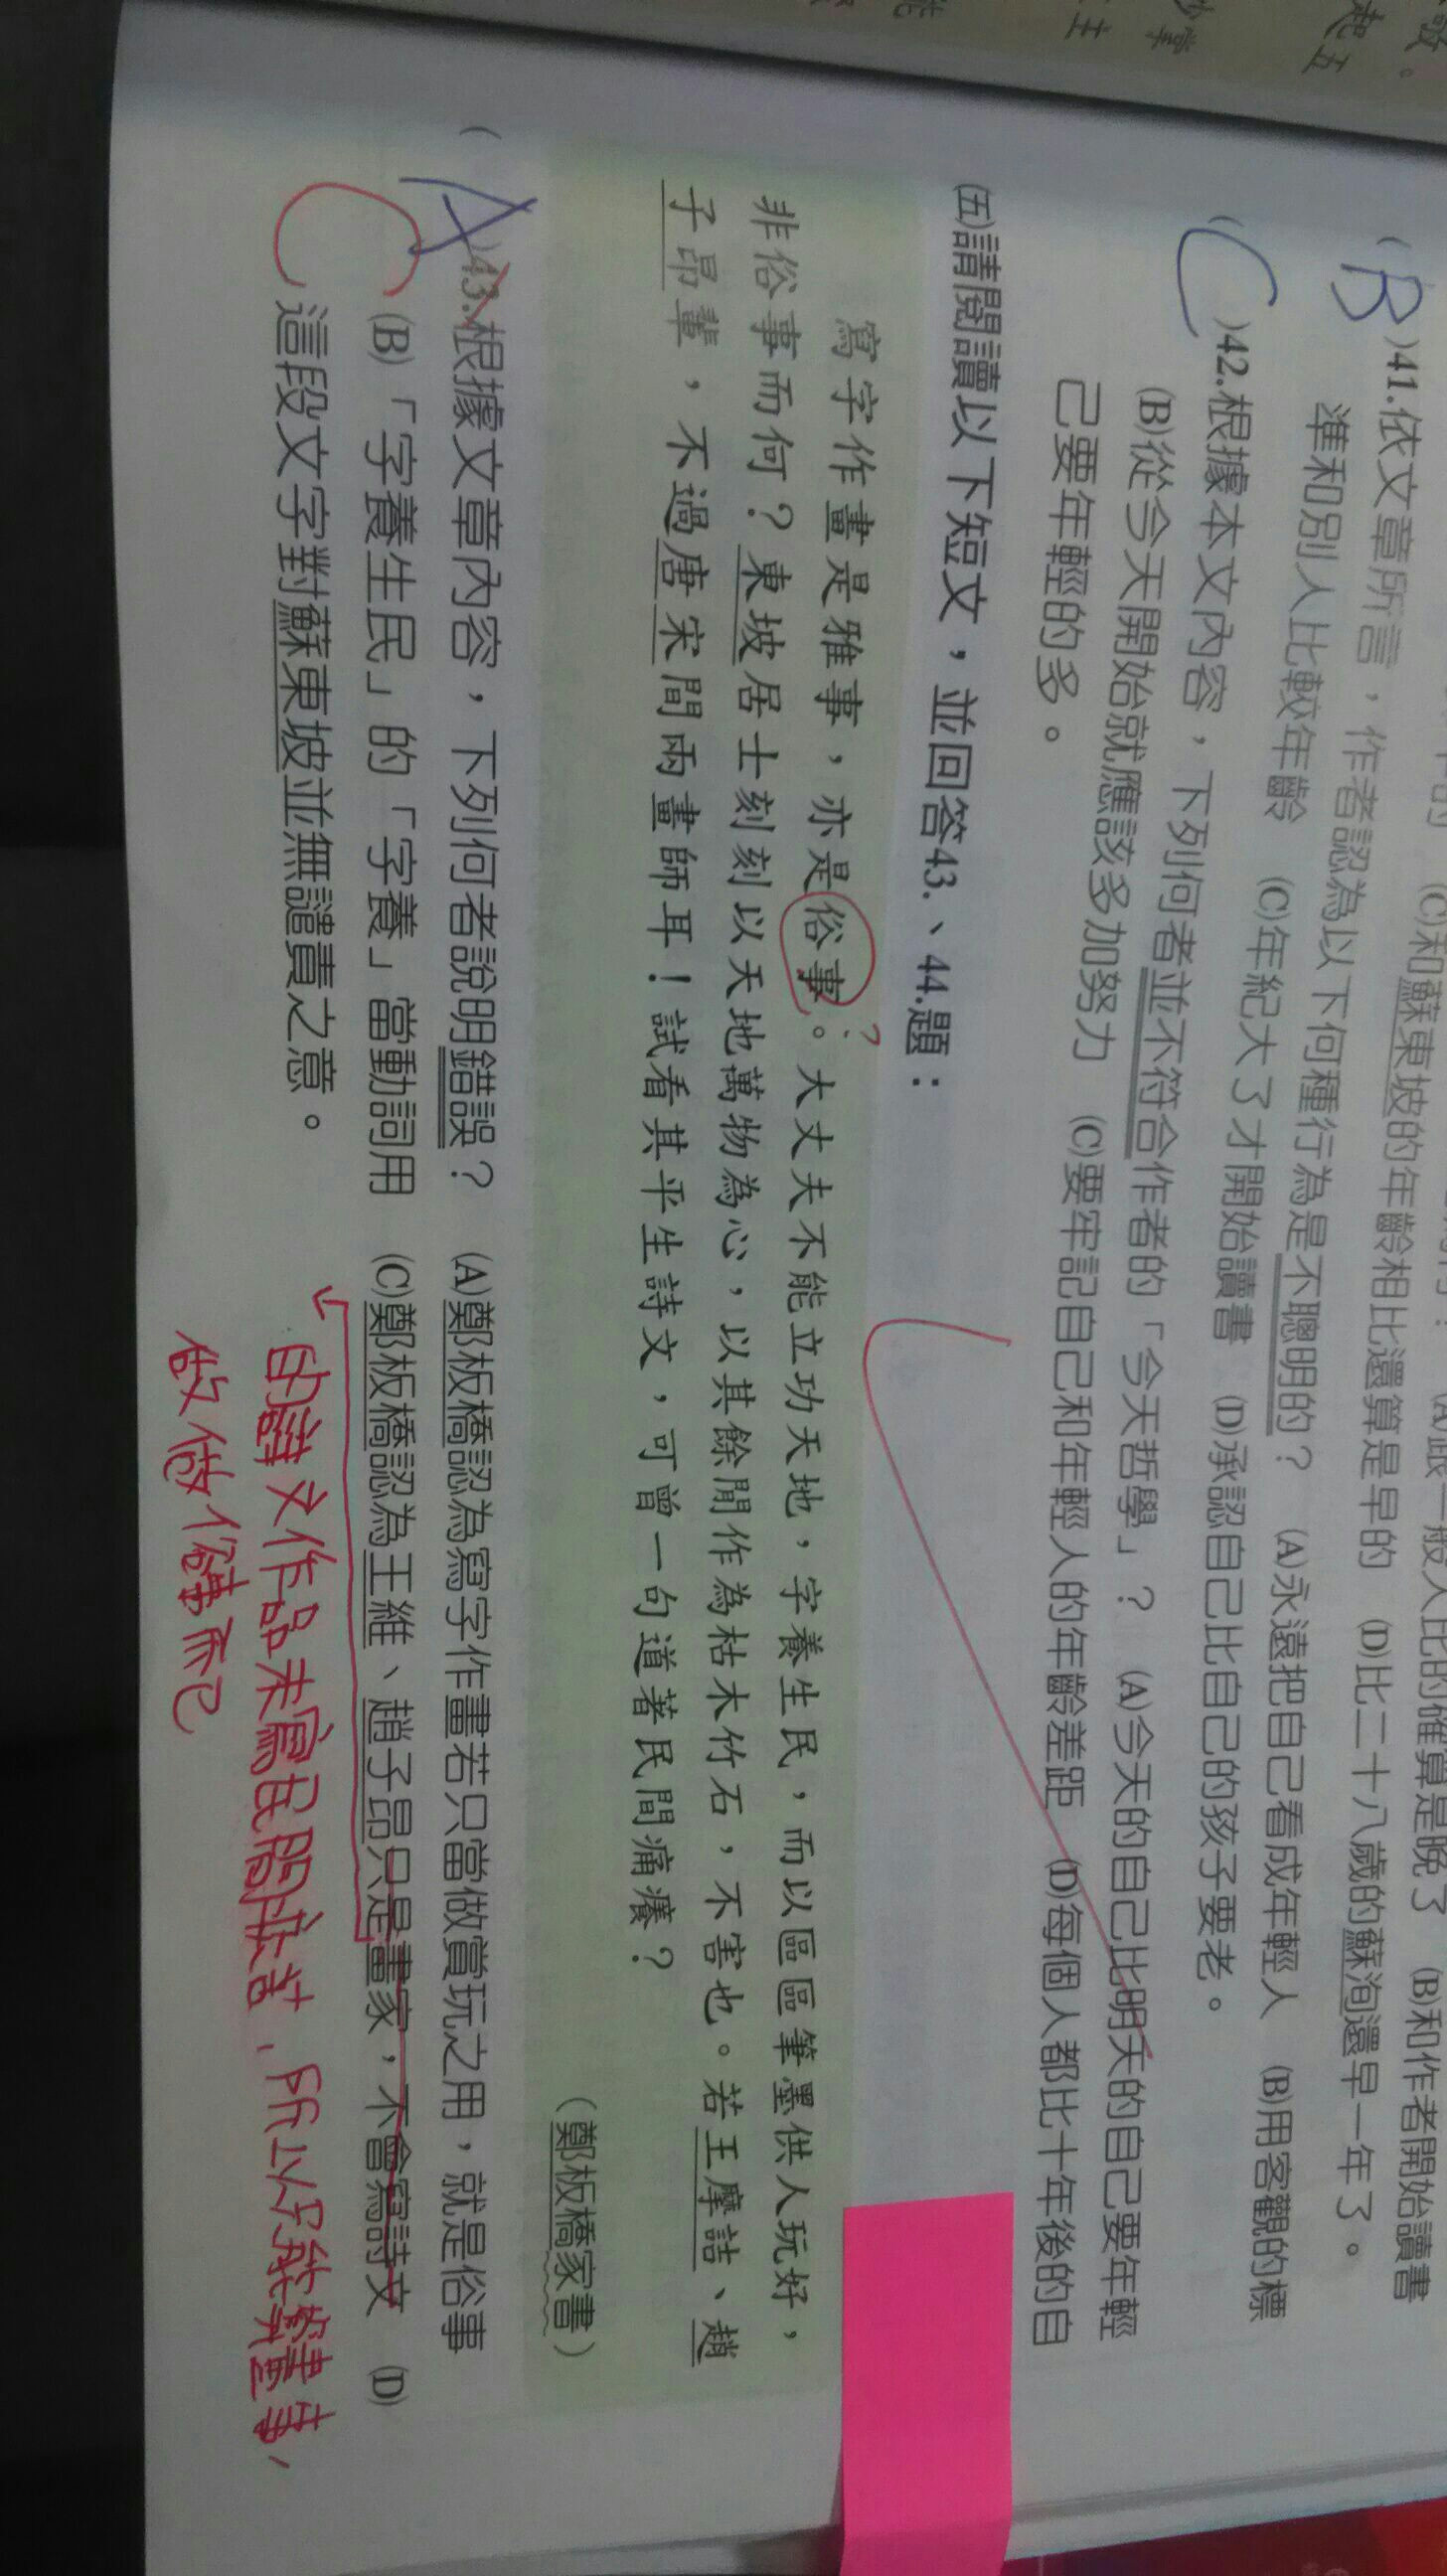 (B)41.依文章所言，作者認為以下何種行為是不聰明的？　(A)永遠把自己看成年輕人　(B)用客觀的標
準和別人比較年齡　(C)年紀大了才開始讀書　(D)承認自己比自己的孩子要老。
(C)42.根據本文內容，下列何者並不符合作者的「今天哲學」？　(A)今天的自己比明天的自己要年輕
(B)從今天開始就應該多加努力　(C)要牢記自己和年輕人的年齡差距　(D)每個人都比十年後的自
己要年輕的多。
(五)請閱讀以下短文，並回答43.、44.題：
寫字作畫是雅事，亦是俗事。大丈夫不能立功天地，字養生民，而以區區筆墨供人玩好，
?
非俗事而何？東坡居士刻刻以天地萬物為心，以其餘閒作為枯木竹石，不害也。若王摩詰、趙
子昂輩，不過唐宋間兩畫師耳！試看其平生詩文，可曾一句道著民間痛癢？
（鄭板橋家書）
(A)43.根據文章內容，下列何者說明錯誤？　(A)鄭板橋認為寫字作畫若只當做賞玩之用，就是俗事
C
(B)「字養生民」的「字養」當動詞用　(C)鄭板橋認為王維、趙子昂只是畫家，不會寫詩文　(D)
這段文字對蘇東坡並無譴責之意。
的詩文作品未寫民間疾苦，所以只能算畫事，
而已